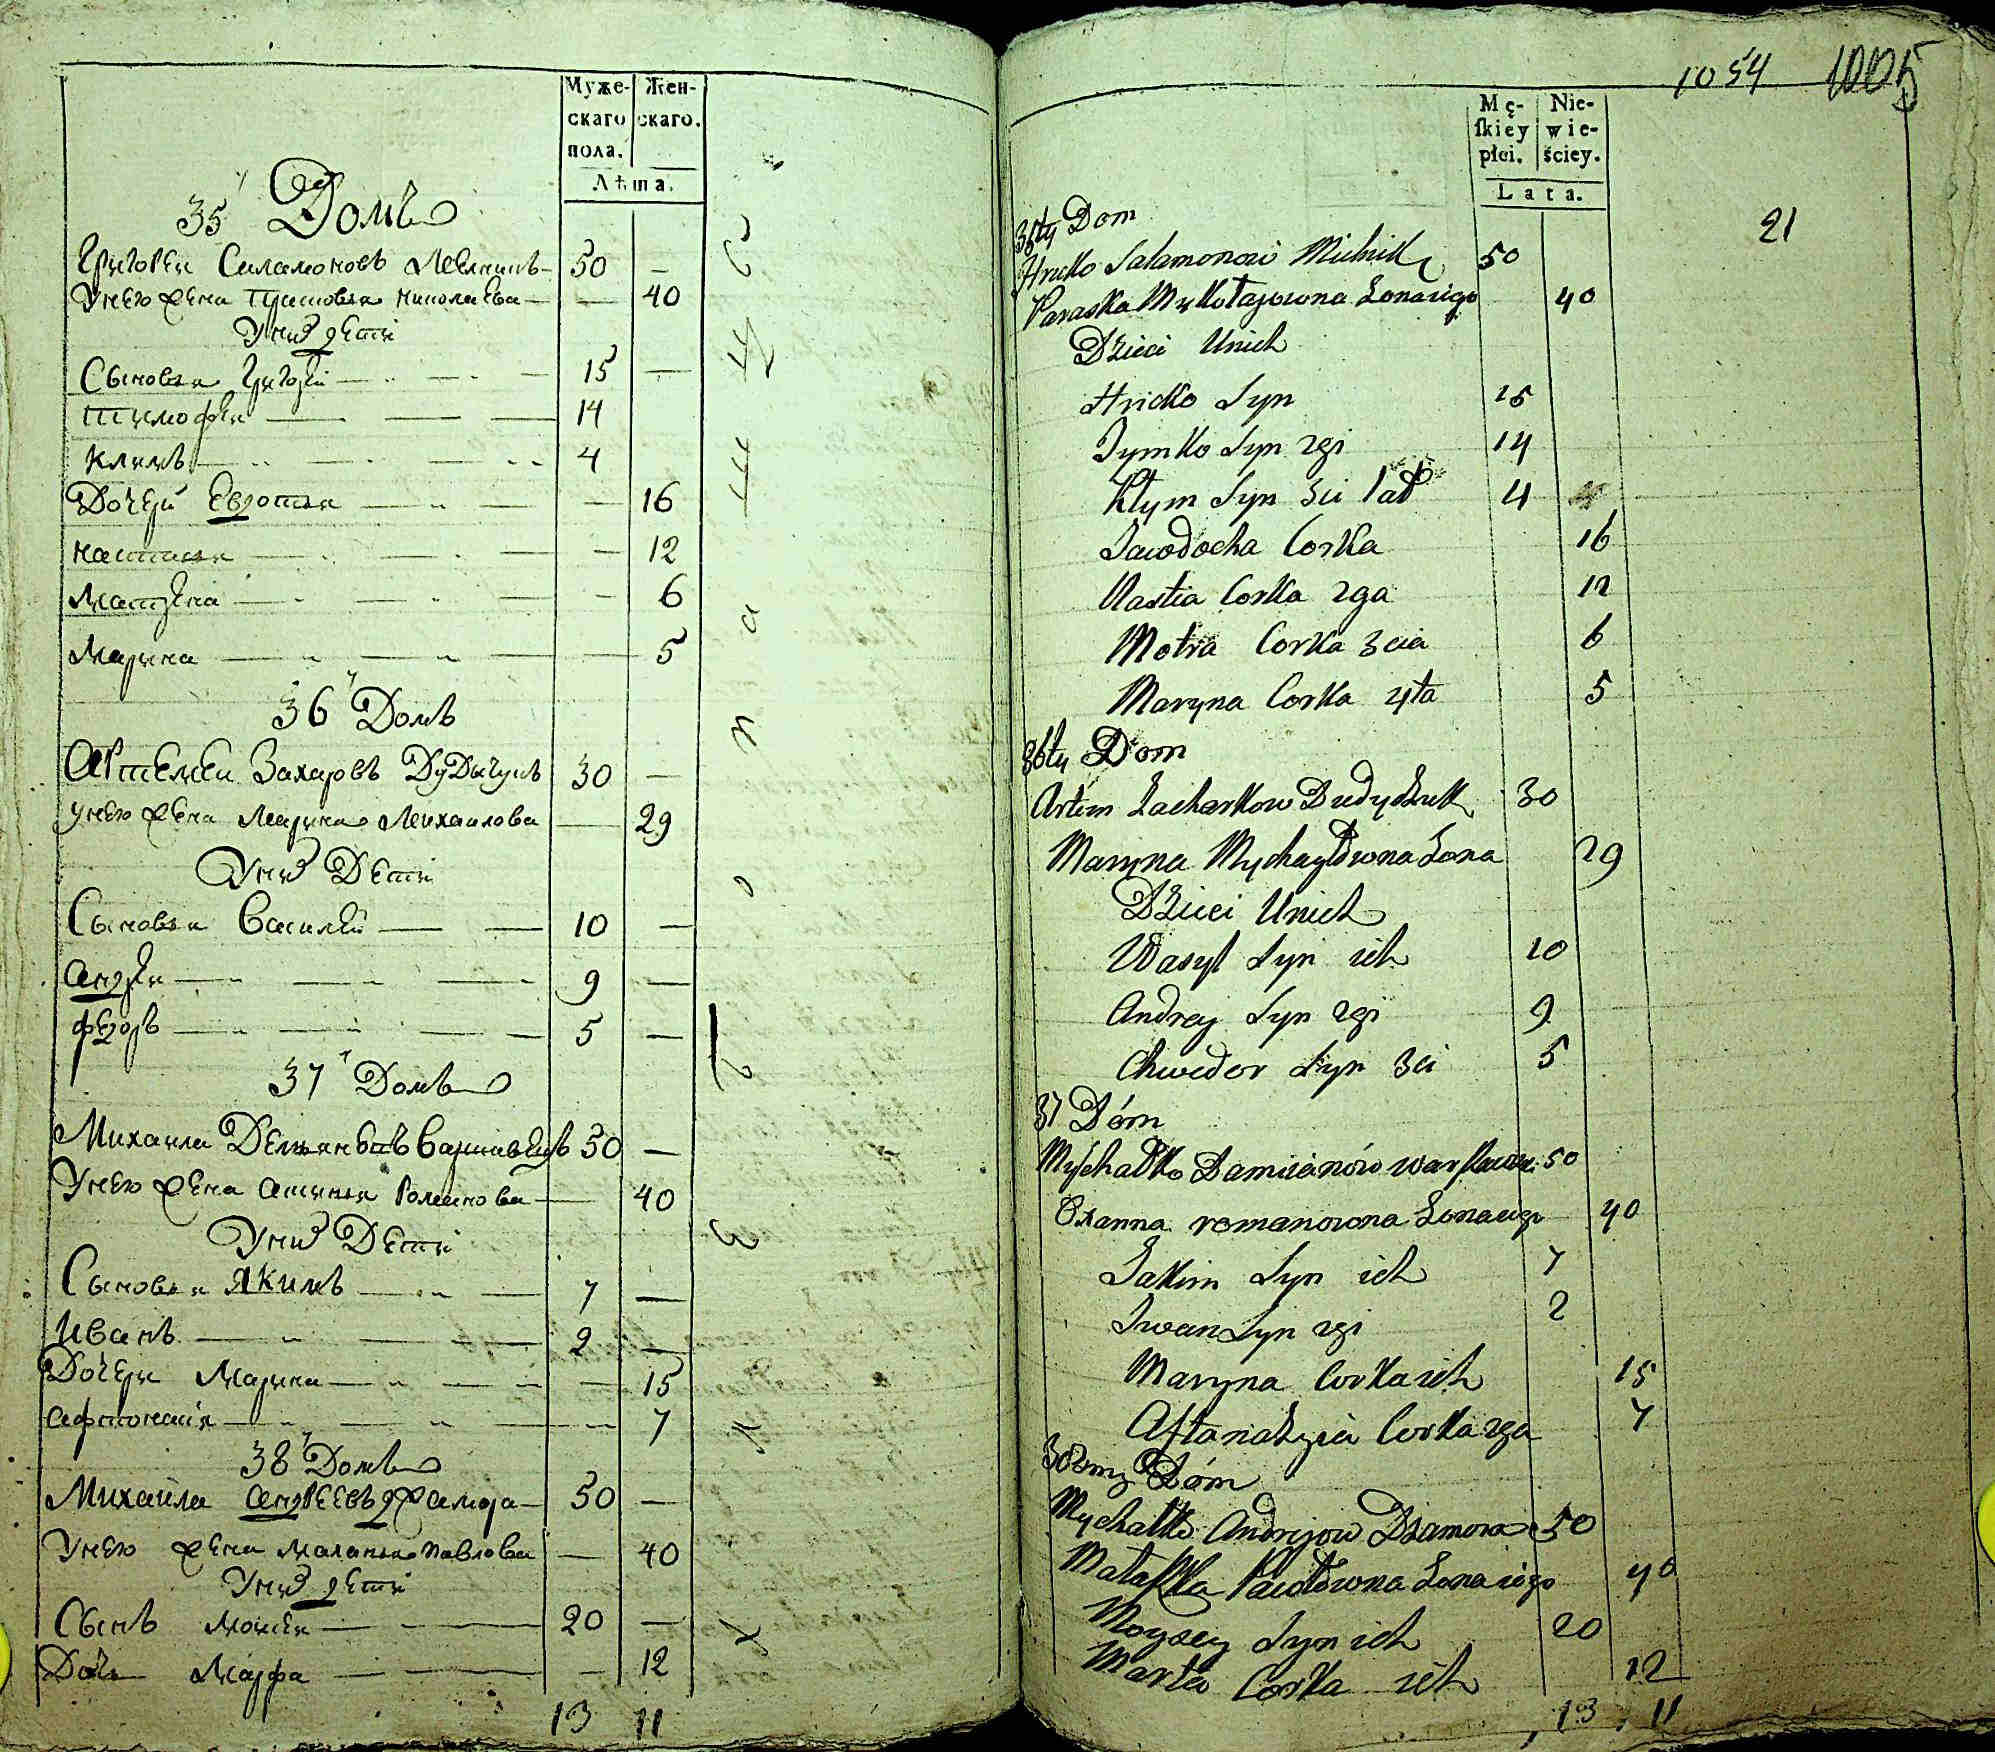 Муже-
скаго
пола.
Жен-
скаго.
Лѣта.
35й Домъ
Григореи Саламоновъ Мелникъ 50 —
Унего жена Парасковья Николаева — 40
Уних дети
Сыновья Григорей 15 —
Тимофеи 14
Климъ 4
Дочери Евдотья — 16
Настасья — 12
Матрена — 6
Марина — 5
36й Домъ
Артемеи Захаровъ Дудычукъ 30 —
унего жена Марина Михаилова — 29
Уних Дети
Сыновья Василей 10 —
Андреи 9 —
Федоръ 5 —
37й Домъ
Михаила Демьяновъ 50 —
Унего жена Романова — 40
Уних Дети
Сыновья Якимъ 7 —
Иванъ 2 —
Дочери Марина — 15
Афтонасия — 7
38й Домъ
Михаила Андреевъ Джамора 50 —
Унего жена Маланья Павлова — 40
Уних дети
Сынъ Моисеи 20 —
Дочь Марфа — 12
13 11
1054 1005
21
Mę-
ſkiey
płci.
Nie-
wie-
ściey.
Lata.
35ty Dom
Hricko Salamonow Mielnik 50
Paraska Mykołajowna Żona iego 40
Dzieci Unich
Hricko Syn 15
Tymko Syn 2gi 14
Kłym Syn 3ci lat 4
Jawdocha Corka 16
Nastia Corka 2ga 12
Motra Corka 3cia 6
Maryna Corka 4ta 5
36ty Dom
Artem Zacharkow Dudyczuk 30
Maryna Mychayłowna Żona 29
Dzieci Unich
Wasyl Syn ich 10
Andrey Syn 2gi 9
Chwedor Syn 3ci 5
37 Dóm
Mychałko Damianów 50
Oxanna romanowna Żona iego 40
Jakim Syn ich 7
Iwan Syn 2gi 2
Maryna Corka ich 15
Aftanazyia Corka 2ga 7
38smy Dóm
Mychałko Andrijow Dzamora 50
Małaszka Pawłowna Żona iego 40
Moysey Syn ich 20
Marta Corka ich 12
13 11